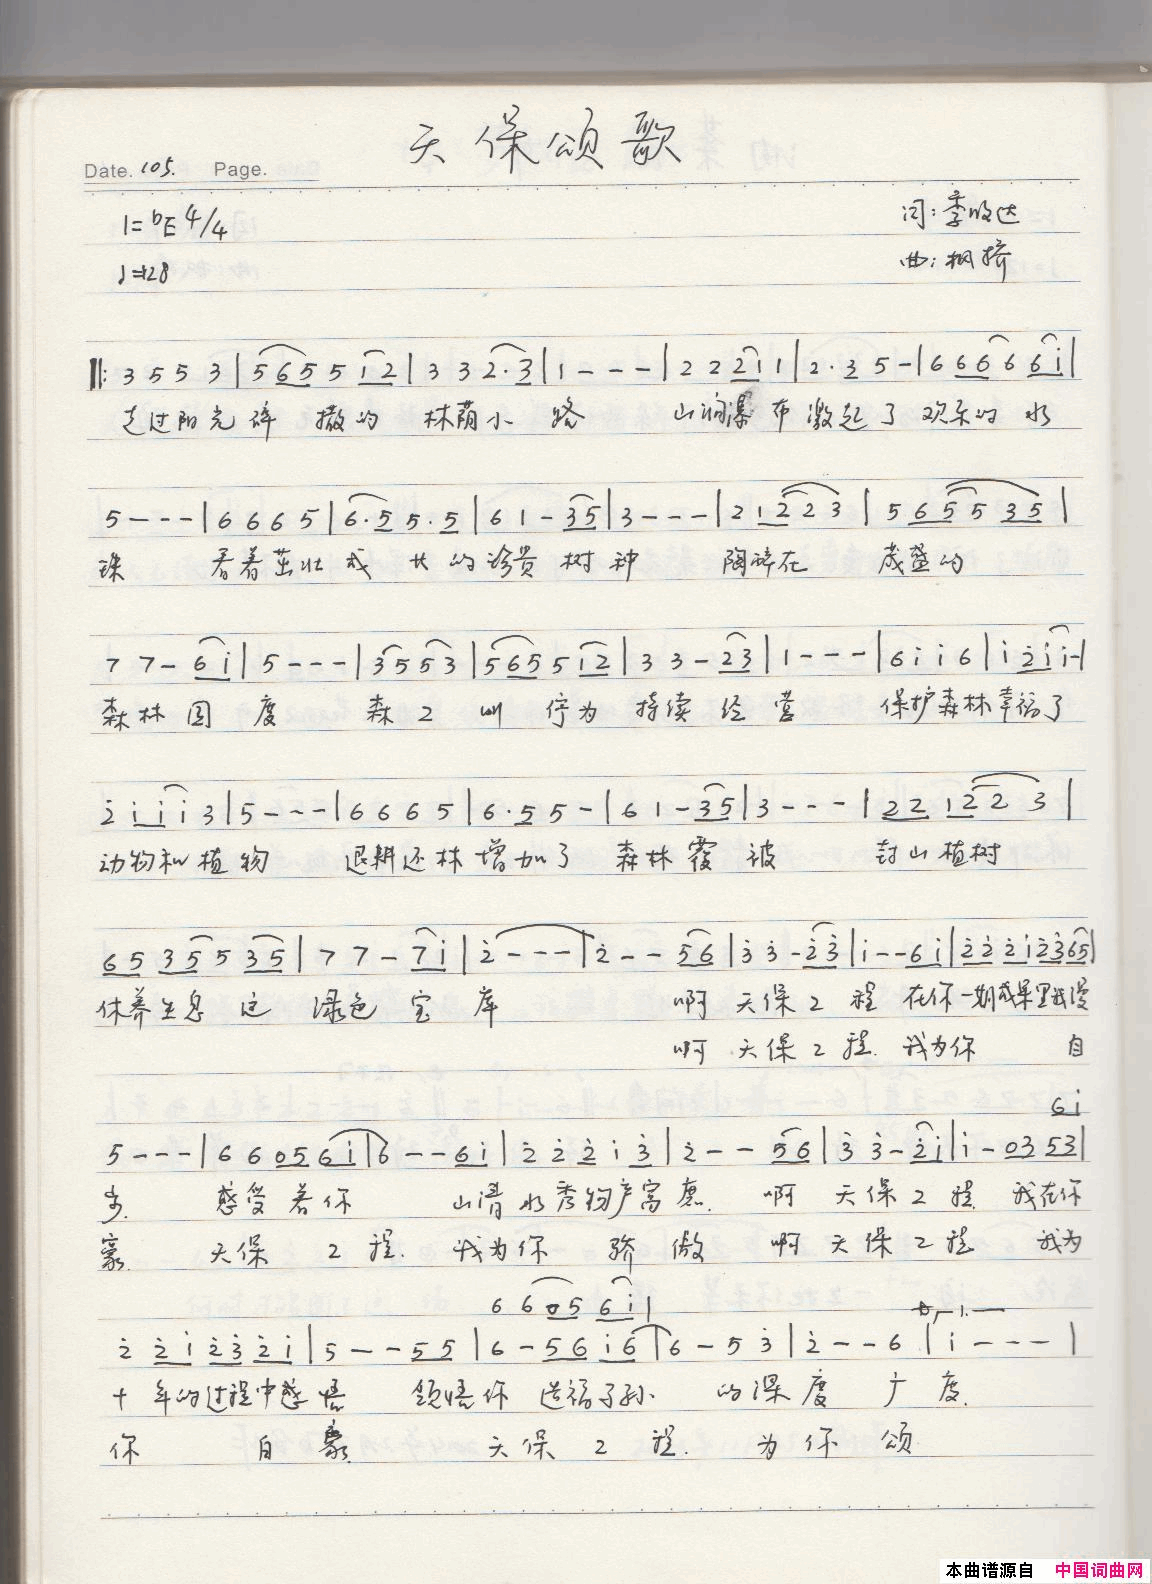 天保颂歌
Date. 105. Page.
1=bE 4/4
词:李收达
♩=128
曲:枫桥
‖: 3 5 5 3 | 5 6 5 5 i 2 | 3 3 2· 3 | 1 - - - | 2 2 2 1 1 | 2· 3 5 - | 6 6 6 6 6 i |
走过阳光碎撒的林荫小路 山涧瀑布激起了欢乐的水
5 - - - | 6 6 6 5 | 6· 5 5· 5 | 6 1 - 3 5 | 3 - - - | 2 1 2 2 3 | 5 6 5 5 3 5 |
珠 看着茁壮成长的珍贵树种 陶醉在 茂盛的
7 7 - 6 i | 5 - - - | 3 5 5 3 | 5 6 5 5 i 2 | 3 3 - 2 3 | 1 - - - | 6 i i 6 | i 2 i i - |
森林国度 森工 停为持续经营 保护森林幸福了
2 i i i 3 | 5 - - - | 6 6 6 5 | 6· 5 5 - | 6 1 - 3 5 | 3 - - - | 2 2 1 2 2 3 |
动物和植物 退耕还林增加了 森林覆被 封山植树
6 5 3 5 5 3 5 | 7 7 - 7 i | 2 - - - | 2 - - 5 6 | 3 3 - 2 3 | i - - 6 i | 2 2 2 i 2 3 6 5 |
休养生息这绿色宝库 啊天保工程 在你一期成果里我漫
啊天保工程 我为你 自
6 i
5 - - - | 6 6 0 5 6 i | 6 - - 6 i | 2 2 2 i 3 | 2 - - 5 6 | 3 3 - 2 i | i - 0 3 5 3 |
步 感受着你 山清水秀物产富庶 啊天保工程 我在你
豪 天保工程 我为你骄傲 啊天保工程 我为
6 6 0 5 6 i |
2 2 i 2 3 2 i | 5 - - 5 5 | 6 - 5 6 i 6 | 6 - 5 3 | 2 - - 6 | i - - - |
十年的过程中感悟 领悟你造福子孙的深度广度
你自豪 天保工程 为你颂
本曲谱源自 中国词曲网